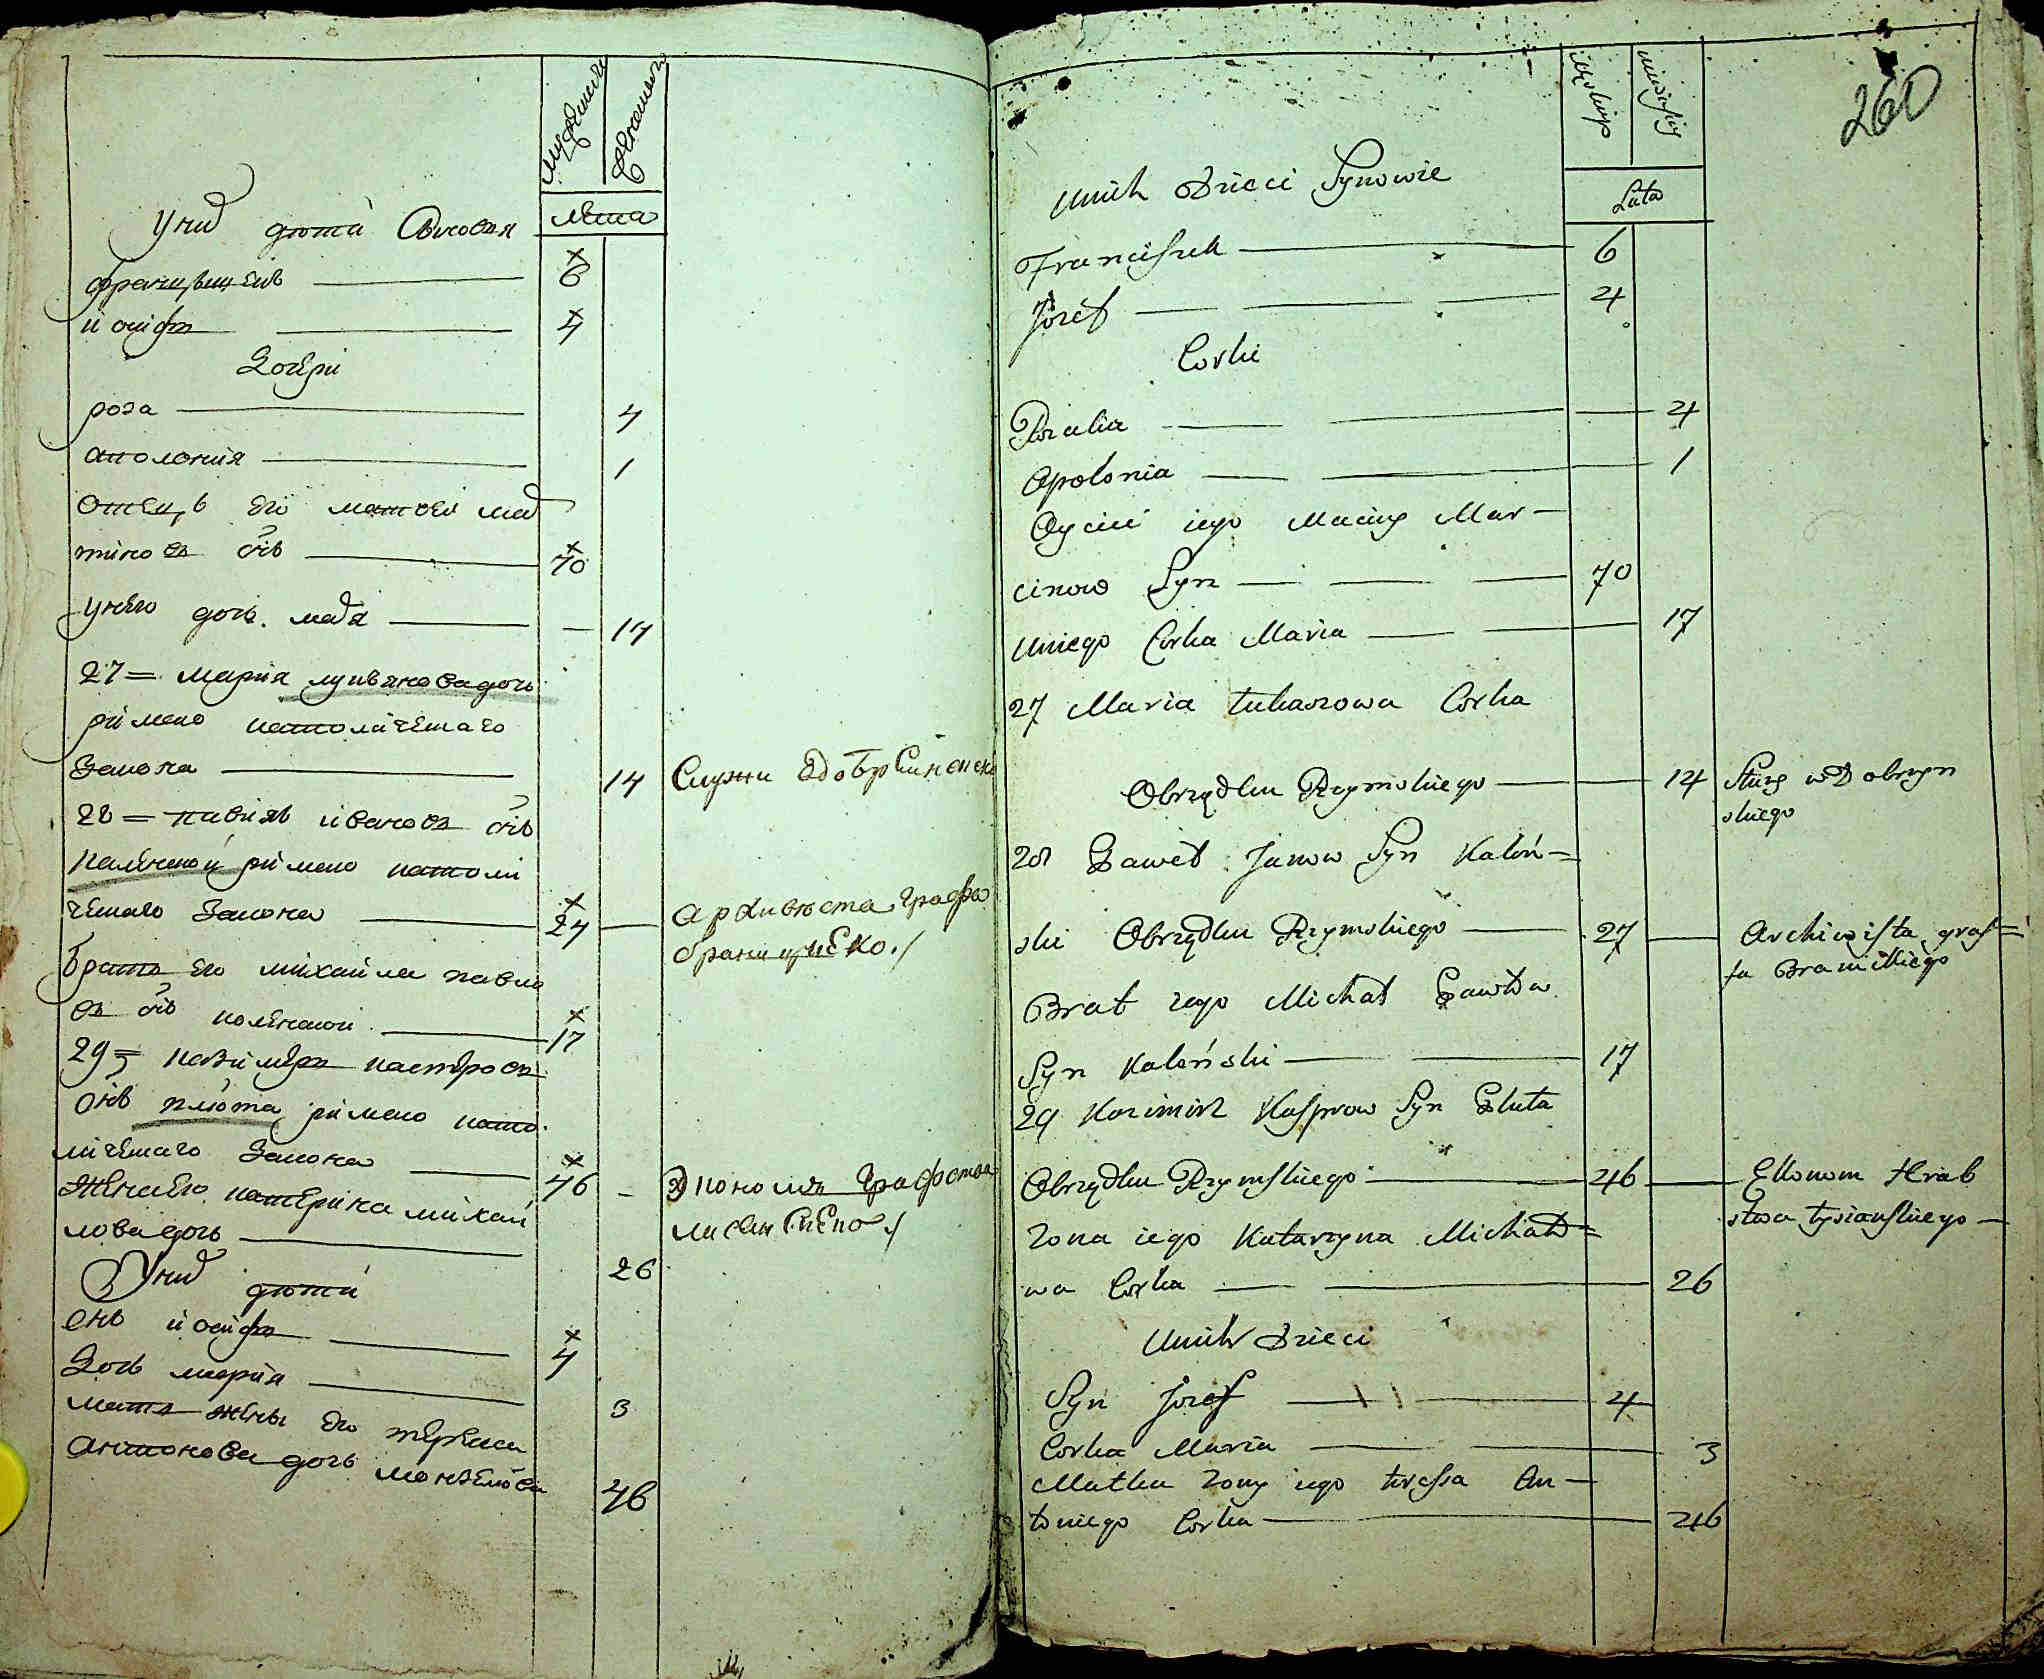 мужеска
женска
лета
у них дети Сыновья
францышекъ 6
иосифъ 4
Дочери
роза 4
аполония 1
отецъ его матвеи мар
тиновъ снъ 70
у него дочь мар̃я 17
27 = Мария лукашова дочь
римско католическаго
Закона 14 Служи
28 = павелъ ивановъ снъ
каленской римско католи
ческаго Закона 27 архивиста графа
браницкого
братъ его михаила павло
въ снъ каленской 17
29 = казимеръ касперовъ
снъ плюта римско като
лическаго Закона 46 Экономъ графства
жена его катерина михаи
лова дочь 26
У них дети
снъ иосифъ 4
Дочь мария 3
мать жены его тереса
антонова дочь 46
260
męskiey
Lata
unich Dzieci Synowie
Franciszek 6
Jozef 4
Corki
Rozalia 4
Apolonia 1
Oyciec iego Maciey Mar-
cinow Syn 70
uniego Corka Maria 17
27 Maria Łukaszowa Corka
Obrządku Rzymskiego 14 Służy w Dobrzyn
skiego
28 Paweł Janow Syn Kaleń=
ski Obrządku Rzymskiego 27 Archiwista graf=
fa Branickiego
Brat iego Michał Pawłow
Syn Kaleński 17
29 Kazimirz Kasprow Syn Pluta
Obrządku Rzymskiego 46 Ekonom Hrab
stwa Tysianskiego
Zona iego Katarzyna Michało=
wa Corka 26
unich Dzieci
Syn Jozef 4
Corka Maria 3
Matka Zony iego Teressa An-
toniego Corka 46